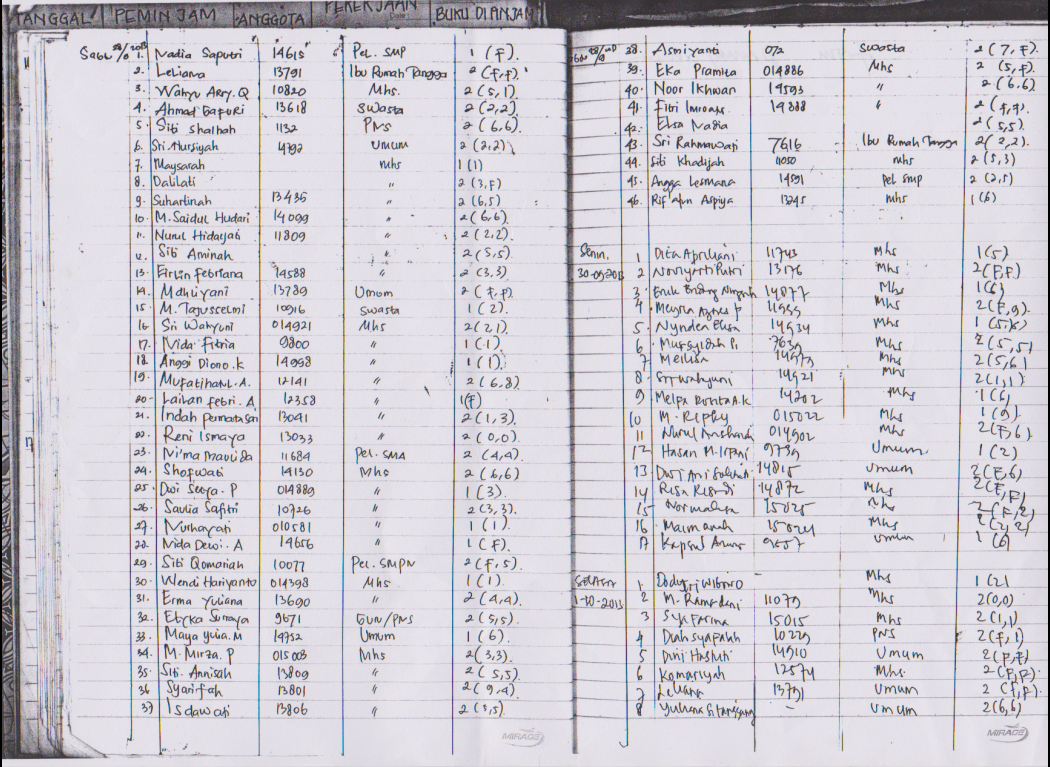 TANGGAL PEMINJAM ANGGOTA PEKERJAAN BUKU DIPINJAM
1. Nadia Saputri 14615 Pel. SMP 1 (F)
2. Leliana 13791 Ibu Rumah Tangga 2 (F,F)
3. Wahyu Ary. Q 10820 Mhs. 2 (5,1)
4. Ahmad Gapuri 13618 Swasta 2 (2,2)
5. Siti Shalhah 1132 PNS 2 (6,6)
6. Sri Nursiyah 4792 Umum 2 (2,2)
7. Maysarah mhs 1 (1)
8. Dalilati " 2 (3,F)
9. Suhartinah 13436 " 2 (6,5)
10. M. Saidul Hudari 14099 " 2 (6,6)
11. Nurul Hidayati 11809 " 2 (2,2)
12. Siti Aminah " 2 (5,5)
13. Eirlin Febriana 14588 " 2 (3,3)
14. Mahliyani 13789 Umum 2 (F,F)
15. M. Tajusselmi 10916 Swasta 1 (2)
16. Sri Wahyuni 014921 Mhs 2 (2,1)
17. Nida Fitria 9800 " 1 (1)
18. Anggi Diono. K 14998 " 1 (1)
19. Mufatihatul. A. 12141 " 2 (6,8)
20. Lailan Febri. A 12358 " 1 (F)
21. Indah Permatasari 13041 " 2 (1,3)
22. Reni Ismaya 13033 " 2 (0,0)
23. Ni'ma Maulida 11684 Pel. SMA 2 (4,4)
24. Shofwati 14130 Mhs 2 (6,6)
25. Dwi Setya. P 014889 " 1 (3)
26. Saulia Safitri 10726 " 2 (3,3)
27. Nurhayati 010581 " 1 (1)
28. Nida Dewi. A 14656 " 1 (F)
29. Siti Qomariah 10077 Pel. SMPN 2 (F,5)
30. Wendi Hariyanto 014398 Mhs 1 (1)
31. Erma Yuliana 13690 " 2 (4,4)
32. 9671 GUN/PNS 2 (5,5)
33. Maya Yulia. M 14752 Umum 1 (6)
34. M. Mirza. P 015003 Mhs 2 (3,3)
35. Siti Annisah 13809 " 2 (5,5)
36 Syarifah 13801 " 2 (9,4)
37 Isdawati 13806 " 2 (5,5)
MIRAGE
38. Asmiyanti 072 Swasta 2 (7,F)
39. Eka Pramita 014886 Mhs 2 (5,F)
40. Noor Ikhwan 14593 " 2 (6,6)
41. Fitri 14888 " 2 (F,F)
42. Elsa Nadia 2 (5,5)
43. Sri Rahmawati 7616 Ibu Rumah Tangga 2 (2,2)
44. Siti Khadijah 11050 mhs 2 (5,3)
45. Angga Lesmana 14591 Pel SMP 2 (2,5)
46. Rif'atun Aspiya 13245 mhs 1 (6)
Senin, 1. Dita Apriliani 11743 Mhs 1 (5)
30-09-2013 2 Noviyanti Putri 13176 Mhs 2 (F,F)
3. 14877 Mhs 1 (6)
4. Meyria Agnes P 11999 Mhs 2 (F,9)
5. Nynden Elisa 14934 Mhs
6. Mursyidah P. 7639 Mhs 2 (5,5)
7 Melisa 14979 Mhs 2 (5,6)
8. Sri Wahyuni 14921 Mhs 2 (1,1)
9 Melpa A.K. 14202 Mhs 1 (6)
10 M. Repky 015022 Mhs 1 (9)
11 Nurul 014902 Mhs 2 (F,6)
12 Hasan M. Irpani 9739 Umum 1 (2)
13 14815 Umum 2 (F,6)
14 Risa Risndi 14872 Mhs 2 (F,F)
15 Normalina 15025 Mhs 2 (F,2)
16 Maimanah 15024 Mhs 2 (2,2)
17 Umum 1 (6)
SELASA 1. Dody Tri Wibowo - Mhs 1 (2)
1-10-2013 2 M. Ramadani 11079 Mhs 2 (0,0)
3 Syafarina 15015 Mhs 2 (1,1)
4 Diah Syapalah 10229 PNS 2 (F,1)
5 Dini Hastuti 14910 Umum 2 (F,F)
6 Komariyah 12574 Mhs. 2 (F,F)
7 Leliana 13791 Umum 2 (F,F)
8 - Umum 2 (6,6)
MIRAGE